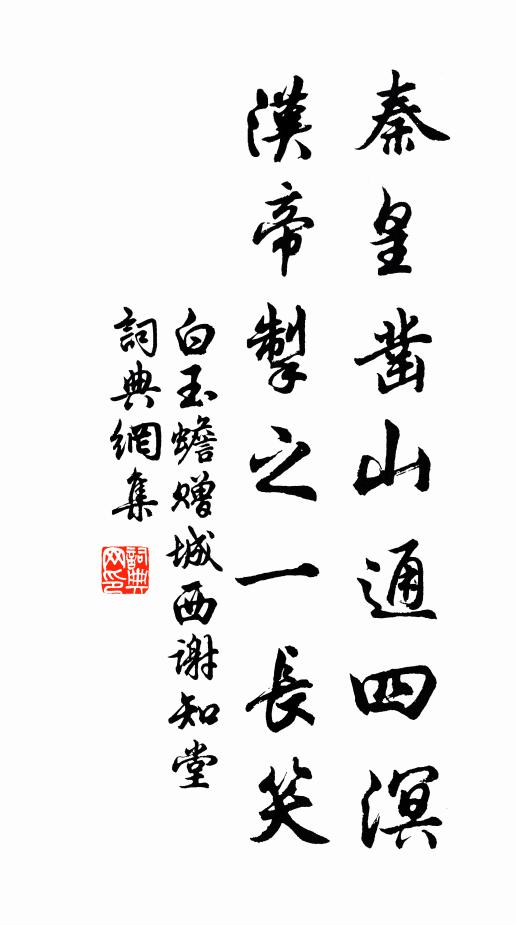 秦皇凿山通四溟
漢帝掣之一長笑
白玉蟾赠城西谢知堂
詞典網集
詞典
网印